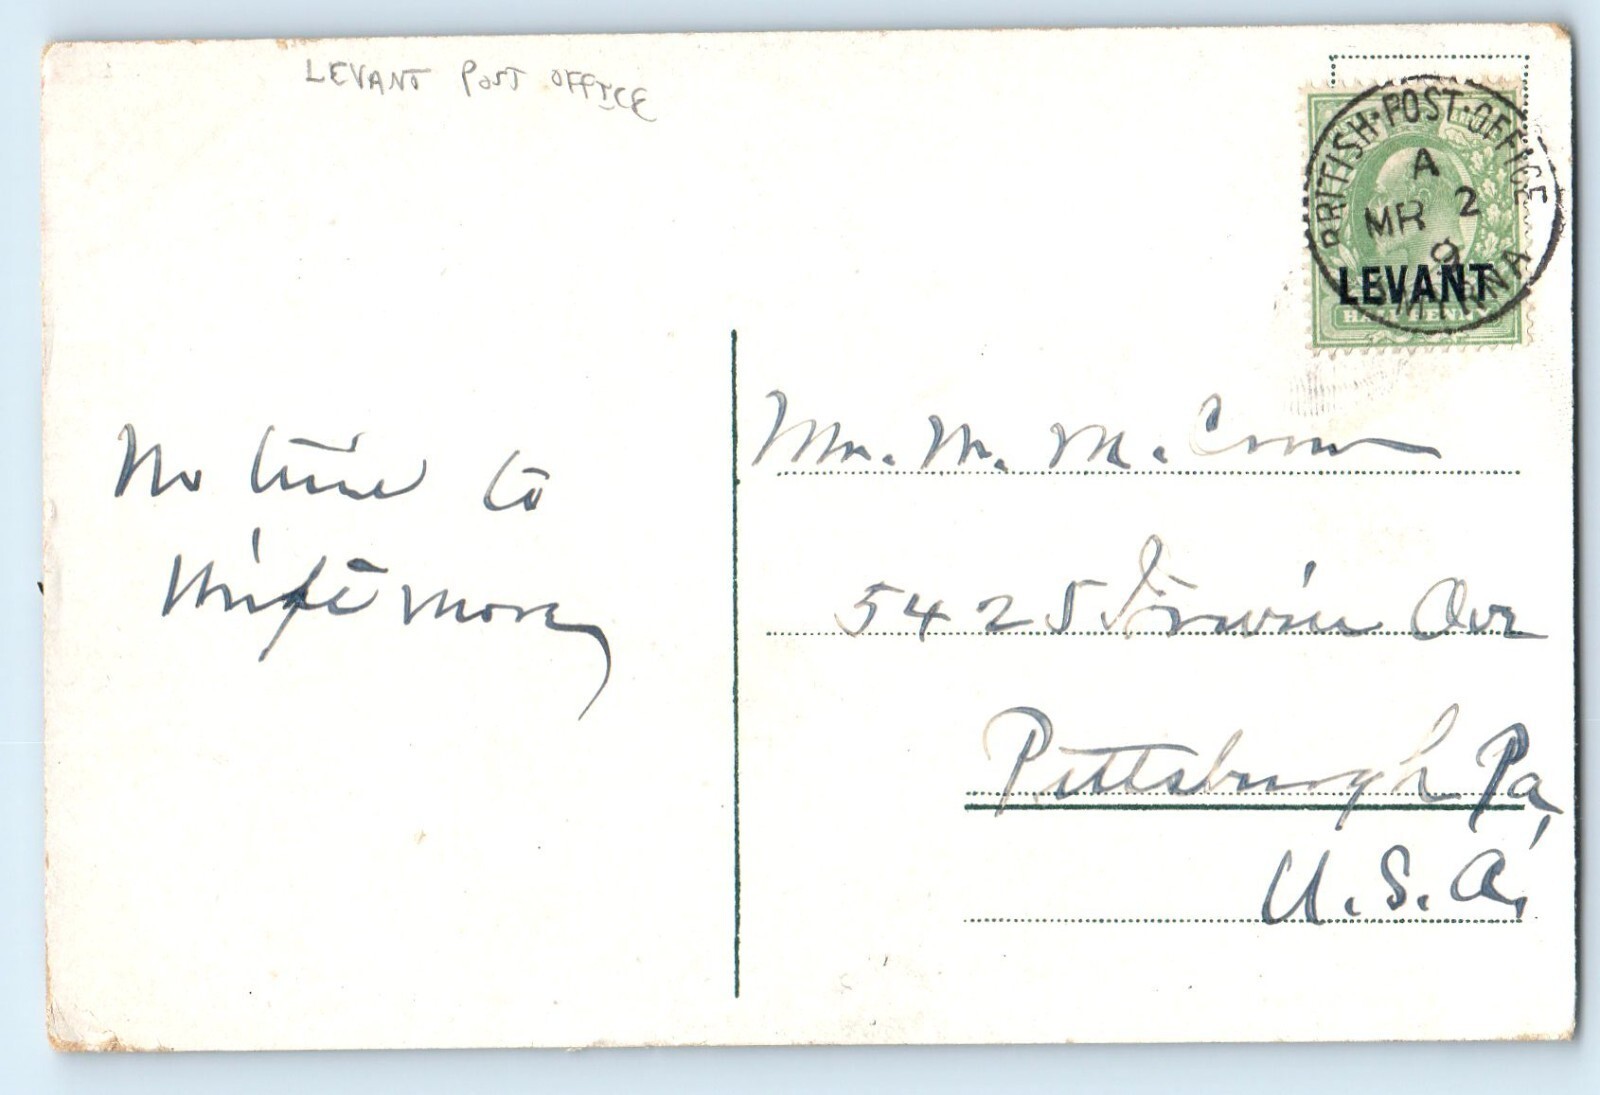 LEVANT POST OFFICE
BRITISH·POST·OFFICE
A
MR 2
9
LEVANT
SMYRNA
HALFPENNY
No time to
write more
Mr. W. M.
5425 Irwin Ave
Pittsburgh Pa,
U.S.A.